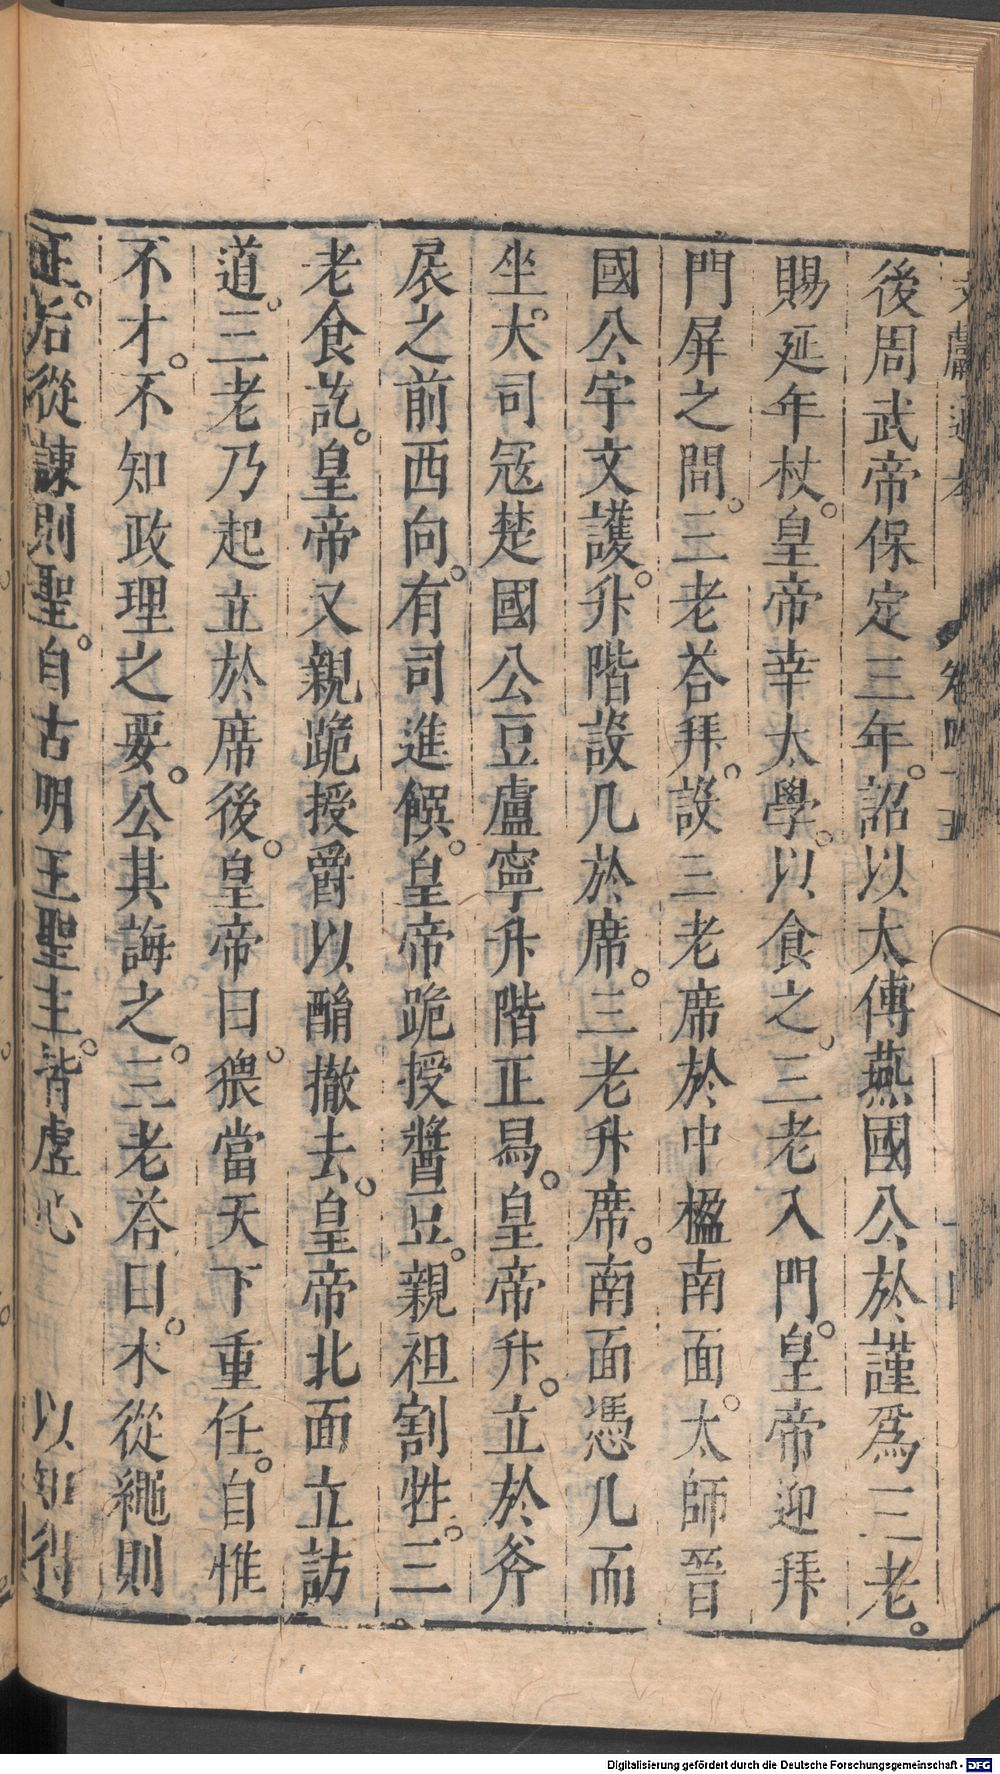 後周武帝保定三年。詔以太傅燕國公於謹爲三老。
賜延年杖。皇帝幸太學。以食之。三老入門。皇帝迎拜
門屏之間。三老荅拜。設三老席於中楹南面。太師晉
國公宇文護。升階設几於席。三老升席。南面憑几而
坐。大司冦楚國公豆盧寧升階正舄。皇帝升。立於斧
扆之前西向。有司進饌。皇帝跪授醬豆。親袒割牲。三
老食訖。皇帝又親跪授爵以酳撤去。皇帝北面立訪
道。三老乃起立於席後。皇帝曰。猥當天下重任。自惟
不才。不知政理之要。公其誨之。三老荅曰。木從繩則
正。后從諫則聖。自古明王聖主。皆虛心 以知得
Digitalisierung gefördert durch die Deutsche Forschungsgemeinschaft - DFG